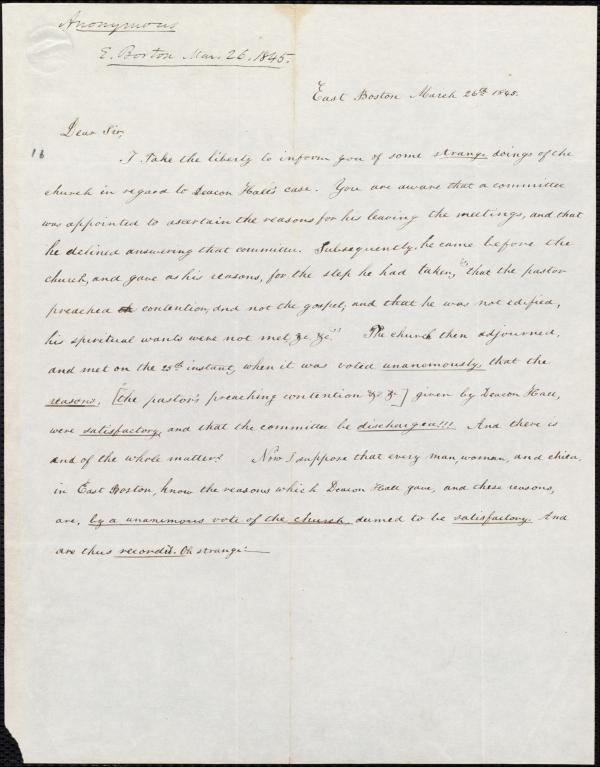 Anonymous
E. Boston Mar. 26. 1845.
East Boston March 26th 1845.
Dear Sir,
I take the liberty to inform you of some strange doings of the
church in regard to Deacon Hall's case. You are aware that a committee
was appointed to ascertain the reasons for his leaving the meetings, and that
he declined answering that committee. Subsequently, he came before the
church, and gave as his reasons, for the step he had taken, "that the pastor
preached contention, and not the gospel; and that he was not edified,
his spiritual wants were not met &c, &c." The church then adjourned,
and met on the 25th instant, when it was voted unanemously, that the
reasons, [the pastor's preaching contention &c &c] given by Deacon Hall,
were satisfactory, and that the committee be discharged!!! And there is
end of the whole matter! Now I suppose that every man, woman, and child,
in East Boston, know the reasons which Deacon Hall gave, and these reasons,
are, by a unanemous vote of the church, deemed to be satisfactory. And
are thus recorded. Oh strange!